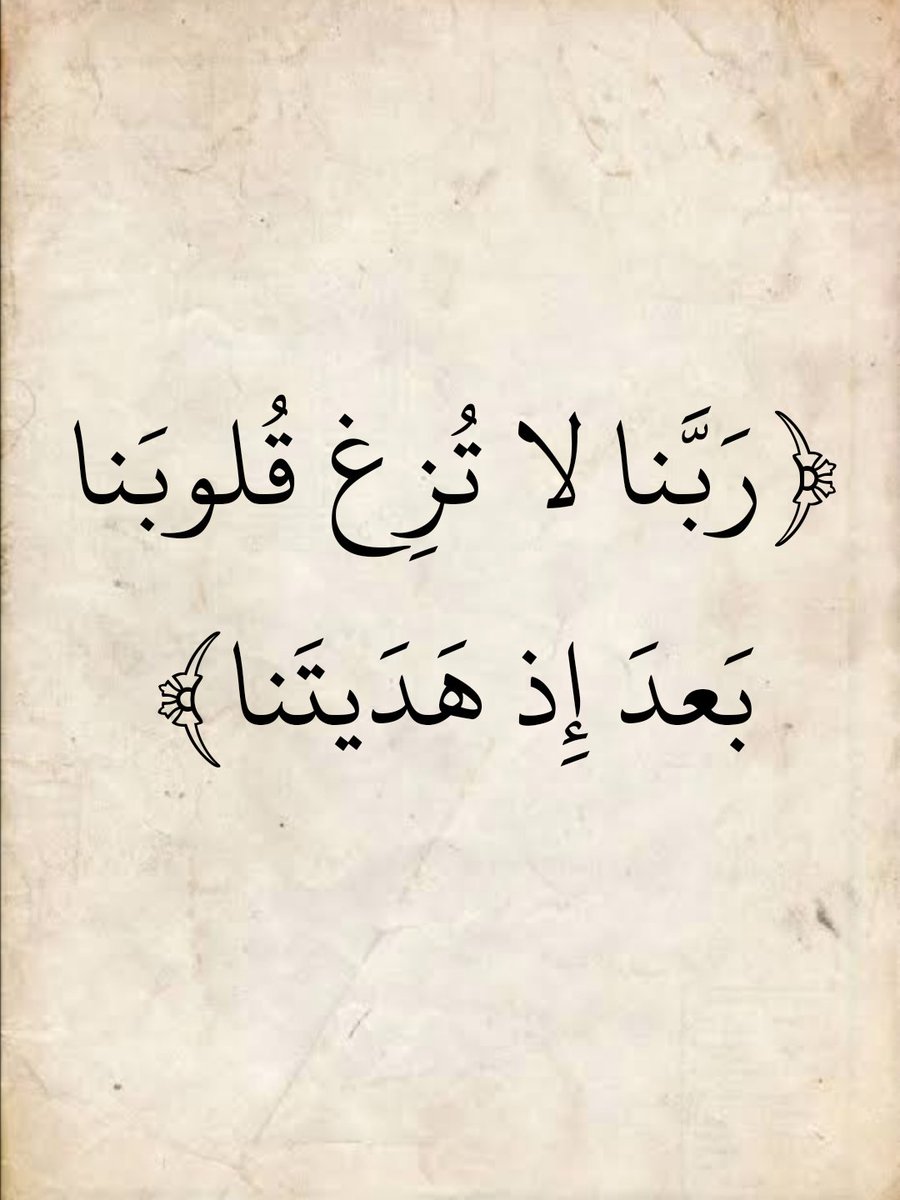 ﴿رَبَّنا لا تُزِغ قُلوبَنا
بَعدَ إِذ هَدَيتَنا﴾